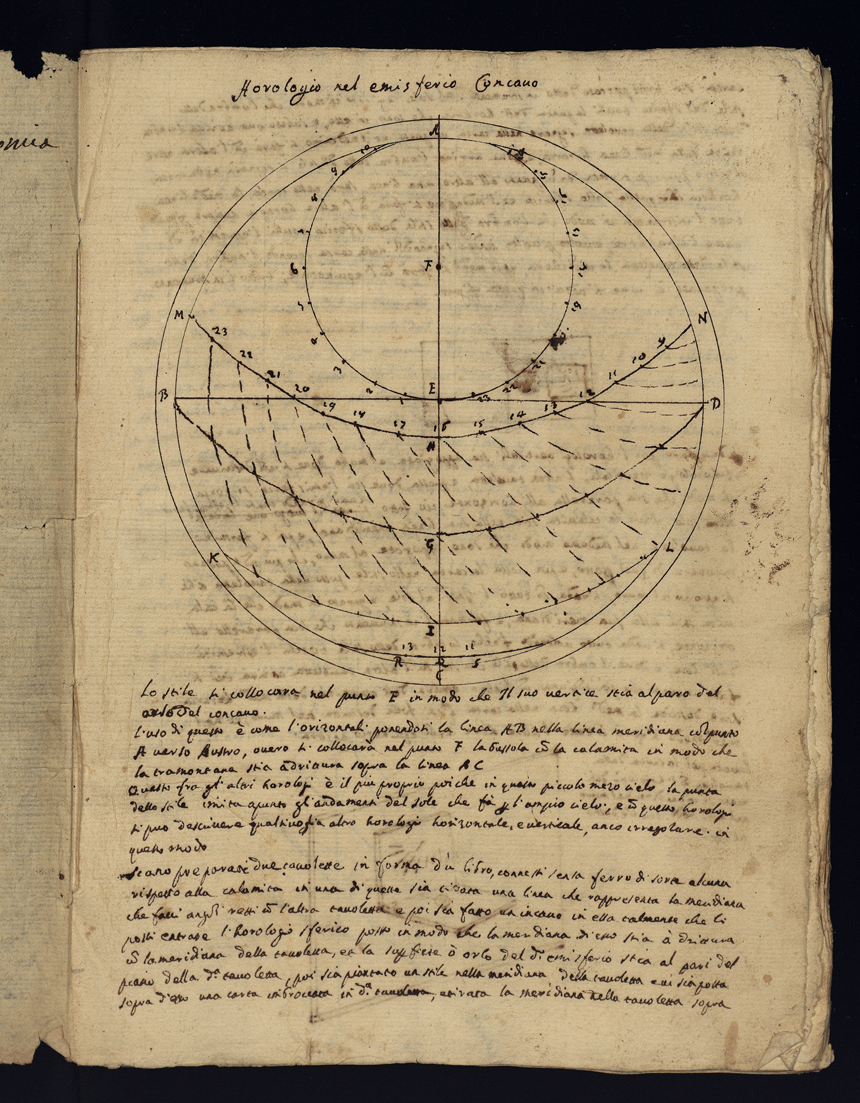 Horologio nel emisferio Concauo
A
10
9
8
7
6
5
4
3
2
1
F
E
23
22
21
19
M
N
23
22
21
20
19
18
17
16
15
14
13
12
11
10
9
B
D
H
G
K
L
I
13 12 11
R Q S
C
Lo stile si collocara nel punto E in modo che Il suo vertice stia al paro del
orlo del concauo.
l'uso di questo è come l'orizontali ponendosi la linea AB nella linea meridiana col punto
A verso Austro, ouero si collocara nel punto F la bussola cō la calamita in modo che
la tramontana stia adrittura sopra la linea AC
Questo fra gl'altri horologi è il piu proprio poiche in questo piccolo mezo cielo la punta
dello stile imita apunto gl'andamenti del sole che fà gl'ampio cielo; e cō questo horologi
si puo descriuere qualsiuoglia altro horologio horizontale, e verticale, anco irregolare. in
questo modo
siano preparate due tauolette in forma d'ù libro, connessi senza ferro di sorte alcuna
rispetto alla calamita in una di queste sia tirata una linea che rappresenta la meridiana
che facci angoli retti cō l'altra tauoletta e poi sia fatto un incauo in essa talmente che ui
possi entrare l'horologio sferico posto in modo che la meridiana di esso stia à drittura
cō la meridiana della tauoletta, et la superficie ò orlo del dº emisferio stia al pari del
piano della dª tauoletta, poi sia piantato un stile nella meridiana della tauoletta e ui sia posta
sopra d'esso una carta in dª tauoletta, e tirata la meridiana nella tauoletta sopra
omia